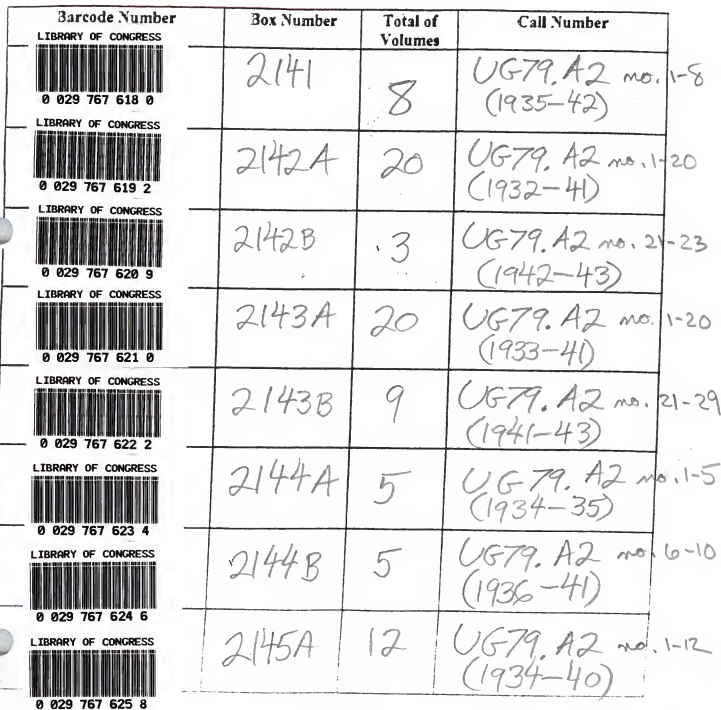 Barcode Number Box Number Total of Volumes Call Number
LIBRARY OF CONGRESS
0 029 767 618 0
2141 8 UG79. A2 no. 1-8
(1935-42)
LIBRARY OF CONGRESS
0 029 767 619 2
2142A 20 UG79. A2 no. 1-20
(1932-41)
LIBRARY OF CONGRESS
0 029 767 620 9
2142B 3 UG79. A2 no. 21-23
(1942-43)
LIBRARY OF CONGRESS
0 029 767 621 0
2143A 20 UG79. A2 no. 1-20
(1933-41)
LIBRARY OF CONGRESS
0 029 767 622 2
2143B 9 UG79. A2 no. 21-29
(1941-43)
LIBRARY OF CONGRESS
0 029 767 623 4
2144A 5 UG79. A2 no. 1-5
(1934-35)
LIBRARY OF CONGRESS
0 029 767 624 6
2144B 5 UG79. A2 no. 6-10
(1936-41)
LIBRARY OF CONGRESS
0 029 767 625 8
2145A 12 UG79. A2 no. 1-12
(1934-40)